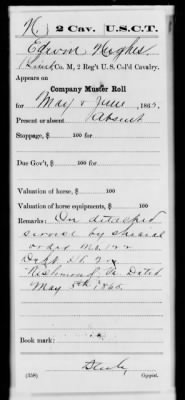 H. 2 Cav. U.S.C.T.
Edwin Hughes
Co. M, 2 Reg't U. S. Col'd Cavalry.
Appears on
Company Muster Roll
for May & June, 1865.
Present or absent Absent
Stoppage, $ 100 for
Due Gov't, $ 100 for
Valuation of horse, $ 100
Valuation of horse equipments, $ 100
Remarks: On detached
service by special
order No. 122
Richmond Va. Dated
May 5th 1865
Book mark:
(358) Copyist.